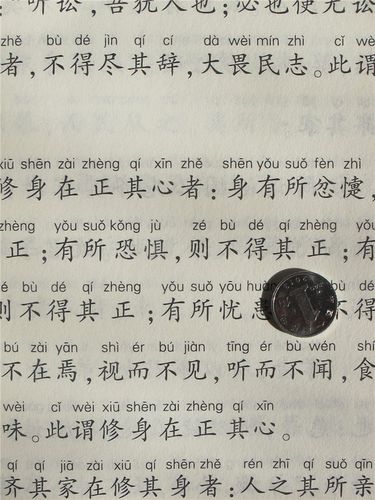 “听讼,吾犹人也;必也使无讼
zhě bù dé jìn qí cí dà wèi mín zhì cǐ wè
者,不得尽其辞,大畏民志。此谓
xiū shēn zài zhèng qí xīn zhě shēn yǒu suǒ fèn zhì
修身在正其心者:身有所忿懥,
zhèng yǒu suǒ kǒng jù zé bù dé qí zhèng yǒ
正;有所恐惧,则不得其正;有
é bù dé qí zhèng yǒu suǒ yōu huàn bù dé
则不得其正;有所忧患 不得
bú zài yān shì ér bú jiàn tīng ér bù wén shí
不在焉,视而不见,听而不闻,食
wèi cǐ wèi xiū shēn zài zhèng qí xīn
味。此谓修身在正其心。
qí qí jiā zài xiū qí shēn zhě rén zhī qí suǒ qīn
齐其家在修其身者:人之其所亲